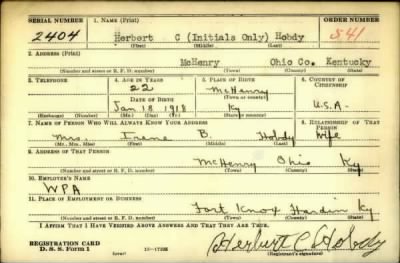 SERIAL NUMBER 1. NAME (Print) ORDER NUMBER
2404 Herbert C (Initials Only) Hobdy 541
(First) (Middle) (Last)
2. ADDRESS (Print)
McHenry Ohio Co. Kentucky
(Number and street or R. F. D. number) (Town) (County) (State)
3. TELEPHONE 4. AGE IN YEARS 5. PLACE OF BIRTH 6. COUNTRY OF CITIZENSHIP
22 McHenry
DATE OF BIRTH (Town or county)
Jan 18 1918 Ky U.S.A.
(Exchange) (Number) (Mo.) (Day) (Yr.) (State or country)
7. NAME OF PERSON WHO WILL ALWAYS KNOW YOUR ADDRESS 8. RELATIONSHIP OF THAT PERSON
Mrs. Irene B. Hobdy Wife
(Mr., Mrs., Miss) (First) (Middle) (Last)
9. ADDRESS OF THAT PERSON
McHenry Ohio Ky
(Number and street or R. F. D. number) (Town) (County) (State)
10. EMPLOYER'S NAME
WPA
11. PLACE OF EMPLOYMENT OR BUSINESS
Fort Knox Hardin Ky
(Number and street or R. F. D. number) (Town) (County) (State)
I AFFIRM THAT I HAVE VERIFIED ABOVE ANSWERS AND THAT THEY ARE TRUE.
REGISTRATION CARD
D. S. S. Form 1 (over) Herbert C Hobdy
(Registrant's signature)